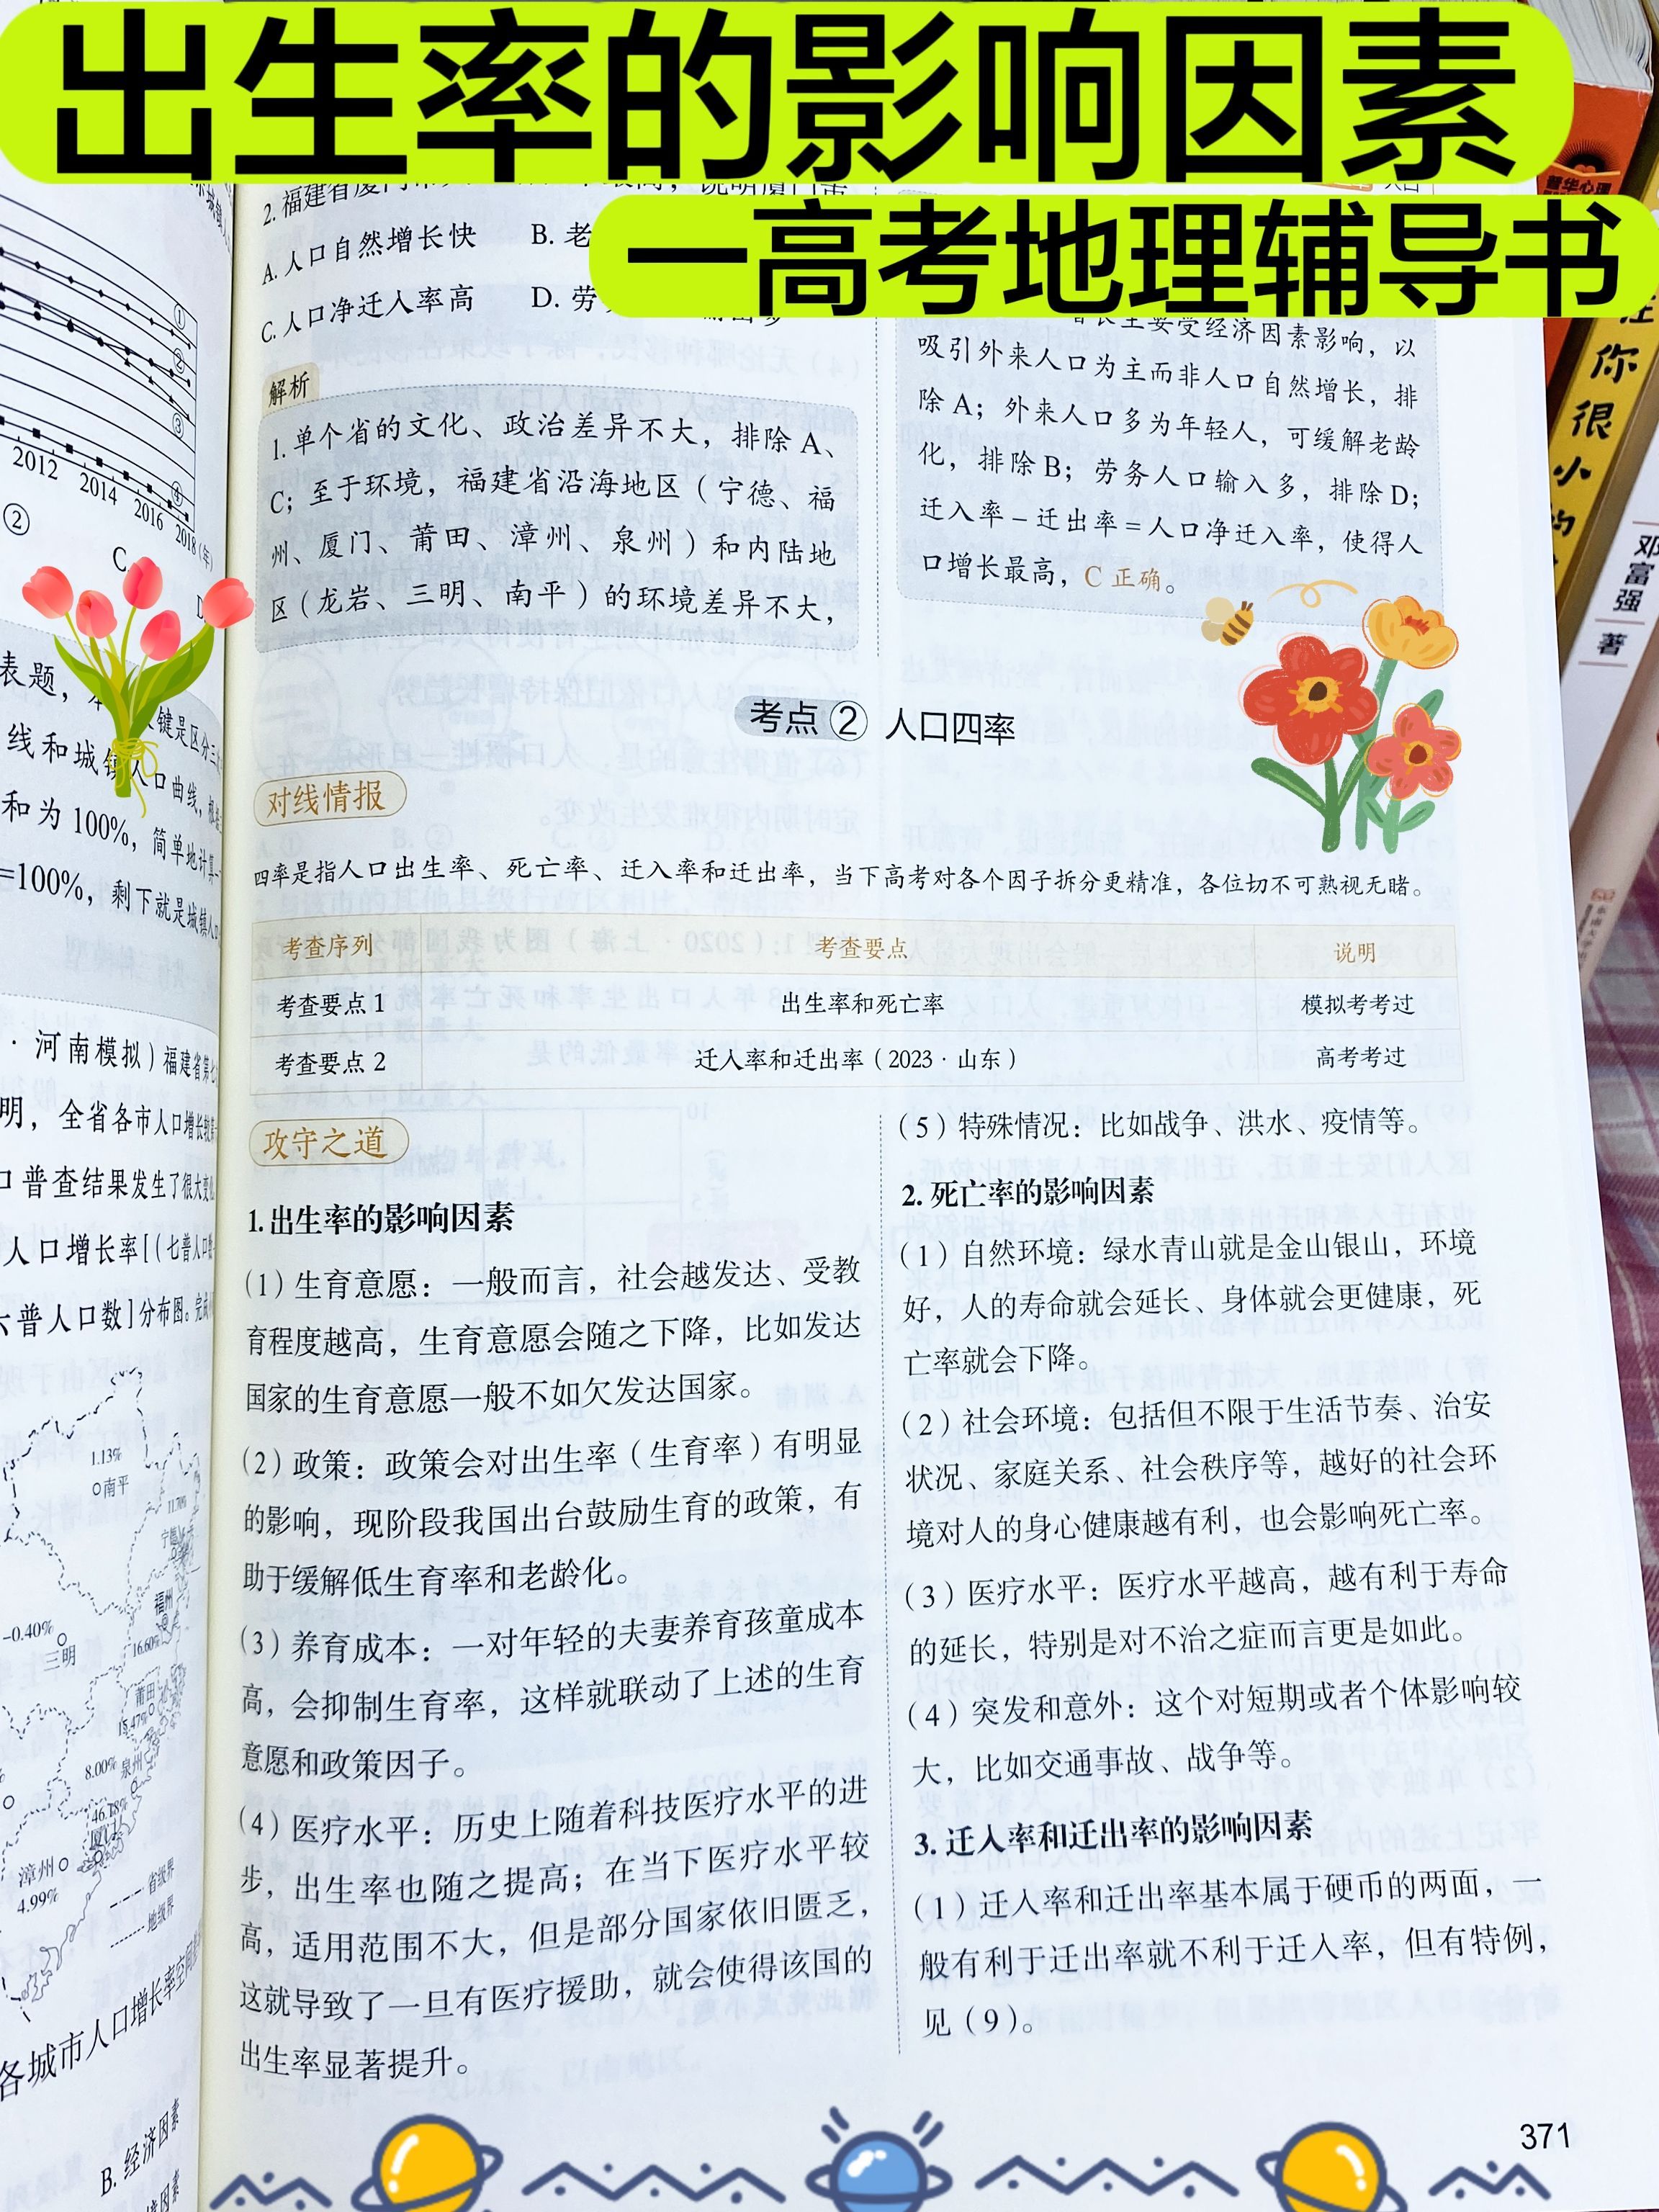 出生率的影响因素
—高考地理辅导书
A. 人口自然增长快
B. 老
C. 人口净迁入率高
D. 劳
解析
1. 单个省的文化、政治差异不大，排除 A、
C；至于环境，福建省沿海地区（宁德、福
州、厦门、莆田、漳州、泉州）和内陆地
区（龙岩、三明、南平）的环境差异不大，
增长主要受经济因素影响，以
吸引外来人口为主而非人口自然增长，排
除 A；外来人口多为年轻人，可缓解老龄
化，排除 B；劳务人口输入多，排除 D；
迁入率－迁出率＝人口净迁入率，使得人
口增长最高，C 正确。
考点 ② 人口四率
对线情报
四率是指人口出生率、死亡率、迁入率和迁出率，当下高考对各个因子拆分更精准，各位切不可熟视无睹。
考查序列 考查要点 说明
考查要点 1 出生率和死亡率 模拟考考过
考查要点 2 迁入率和迁出率（2023 · 山东） 高考考过
攻守之道
1. 出生率的影响因素
（1）生育意愿：一般而言，社会越发达、受教
育程度越高，生育意愿会随之下降，比如发达
国家的生育意愿一般不如欠发达国家。
（2）政策：政策会对出生率（生育率）有明显
的影响，现阶段我国出台鼓励生育的政策，有
助于缓解低生育率和老龄化。
（3）养育成本：一对年轻的夫妻养育孩童成本
高，会抑制生育率，这样就联动了上述的生育
意愿和政策因子。
（4）医疗水平：历史上随着科技医疗水平的进
步，出生率也随之提高；在当下医疗水平较
高，适用范围不大，但是部分国家依旧匮乏，
这就导致了一旦有医疗援助，就会使得该国的
出生率显著提升。
（5）特殊情况：比如战争、洪水、疫情等。
2. 死亡率的影响因素
（1）自然环境：绿水青山就是金山银山，环境
好，人的寿命就会延长、身体就会更健康，死
亡率就会下降。
（2）社会环境：包括但不限于生活节奏、治安
状况、家庭关系、社会秩序等，越好的社会环
境对人的身心健康越有利，也会影响死亡率。
（3）医疗水平：医疗水平越高，越有利于寿命
的延长，特别是对不治之症而言更是如此。
（4）突发和意外：这个对短期或者个体影响较
大，比如交通事故、战争等。
3. 迁入率和迁出率的影响因素
（1）迁入率和迁出率基本属于硬币的两面，一
般有利于迁出率就不利于迁入率，但有特例，
见（9）。
371
2012 2014 2016 2018（年）
①
②
③
④
②
C
表题，
键是区分三
线和城镇人口曲线，
和为 100%，简单地计算
=100%，剩下就是城镇人口
· 河南模拟）福建省第七
明，全省各市人口增长
口普查结果发生了很大变
人口增长率[（七普人口
六普人口数]分布图。完成
1.13%
南平
宁德
福州
-0.40%
三明
16.60%
莆田
8.00%
泉州
46.18%
厦门
漳州
4.99%
省级界
地级界
各城市人口增长率空间
B. 经济因素
你
很
小
的
邓富强 著